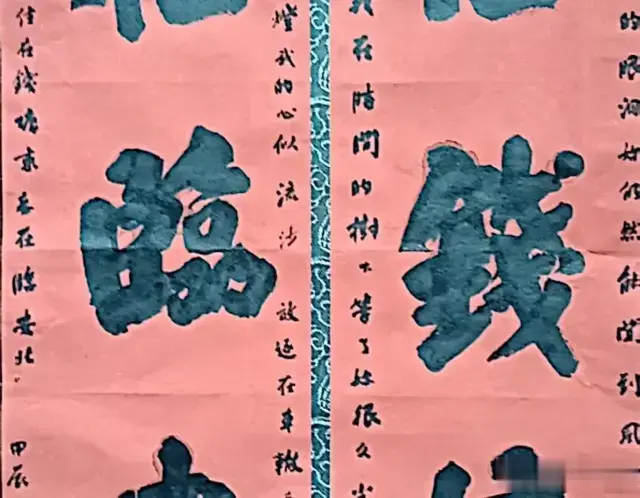 的眼 仍然能聞到風
錢
在時間的樹下等了 很久
燈 我的心似流沙 放逐在車轍
臨
在錢塘東 在臨安北
甲辰